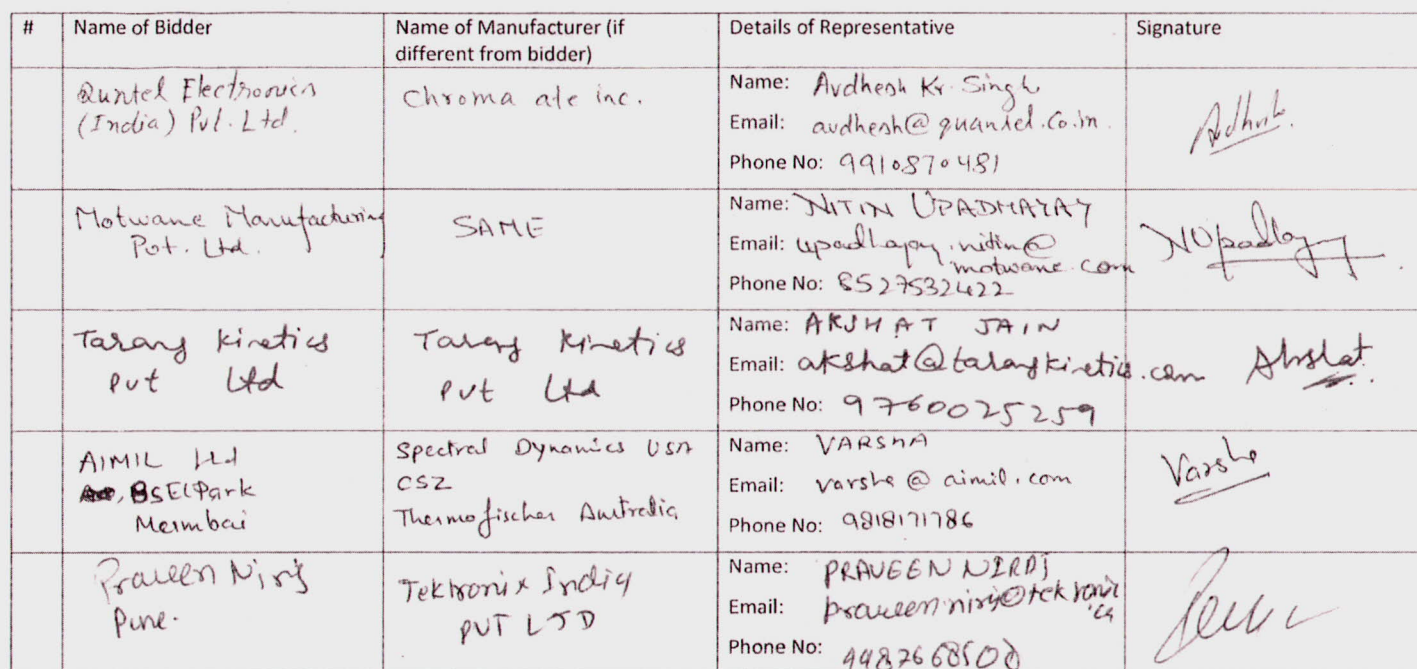 # Name of Bidder Name of Manufacturer (if different from bidder) Details of Representative Signature
Quntel Electronics
(India) Pvt. Ltd.
Chroma ate inc.
Name: Avdhesh Kr. Singh
Email: avdhesh@quantel.co.in
Phone No: 9910870481
Motwane Manufacturing
Pvt. Ltd.
SAME
Name: NITIN UPADHAYAY
Email: upadhayay.nitin@
motwane.com
Phone No: 8527532422
NUpadhay
Tarang Kinetics
Pvt Ltd
Tarang Kinetics
Pvt Ltd
Name: AKSHAT JAIN
Email: akshat@tarangkinetics.com
Phone No: 9760025259
Akshat
AIMIL Ltd
BSEL Park
Mumbai
Spectral Dynamics USA
CSZ
Thermofischer Australia
Name: VARSHA
Email: varsha@aimil.com
Phone No: 9818171786
Varsha
Praveen Niraj
Pune.
Tektronix India
PVT LTD
Name: PRAVEEN NIRAJ
Email: praveen.niraj@tektronix
Phone No: